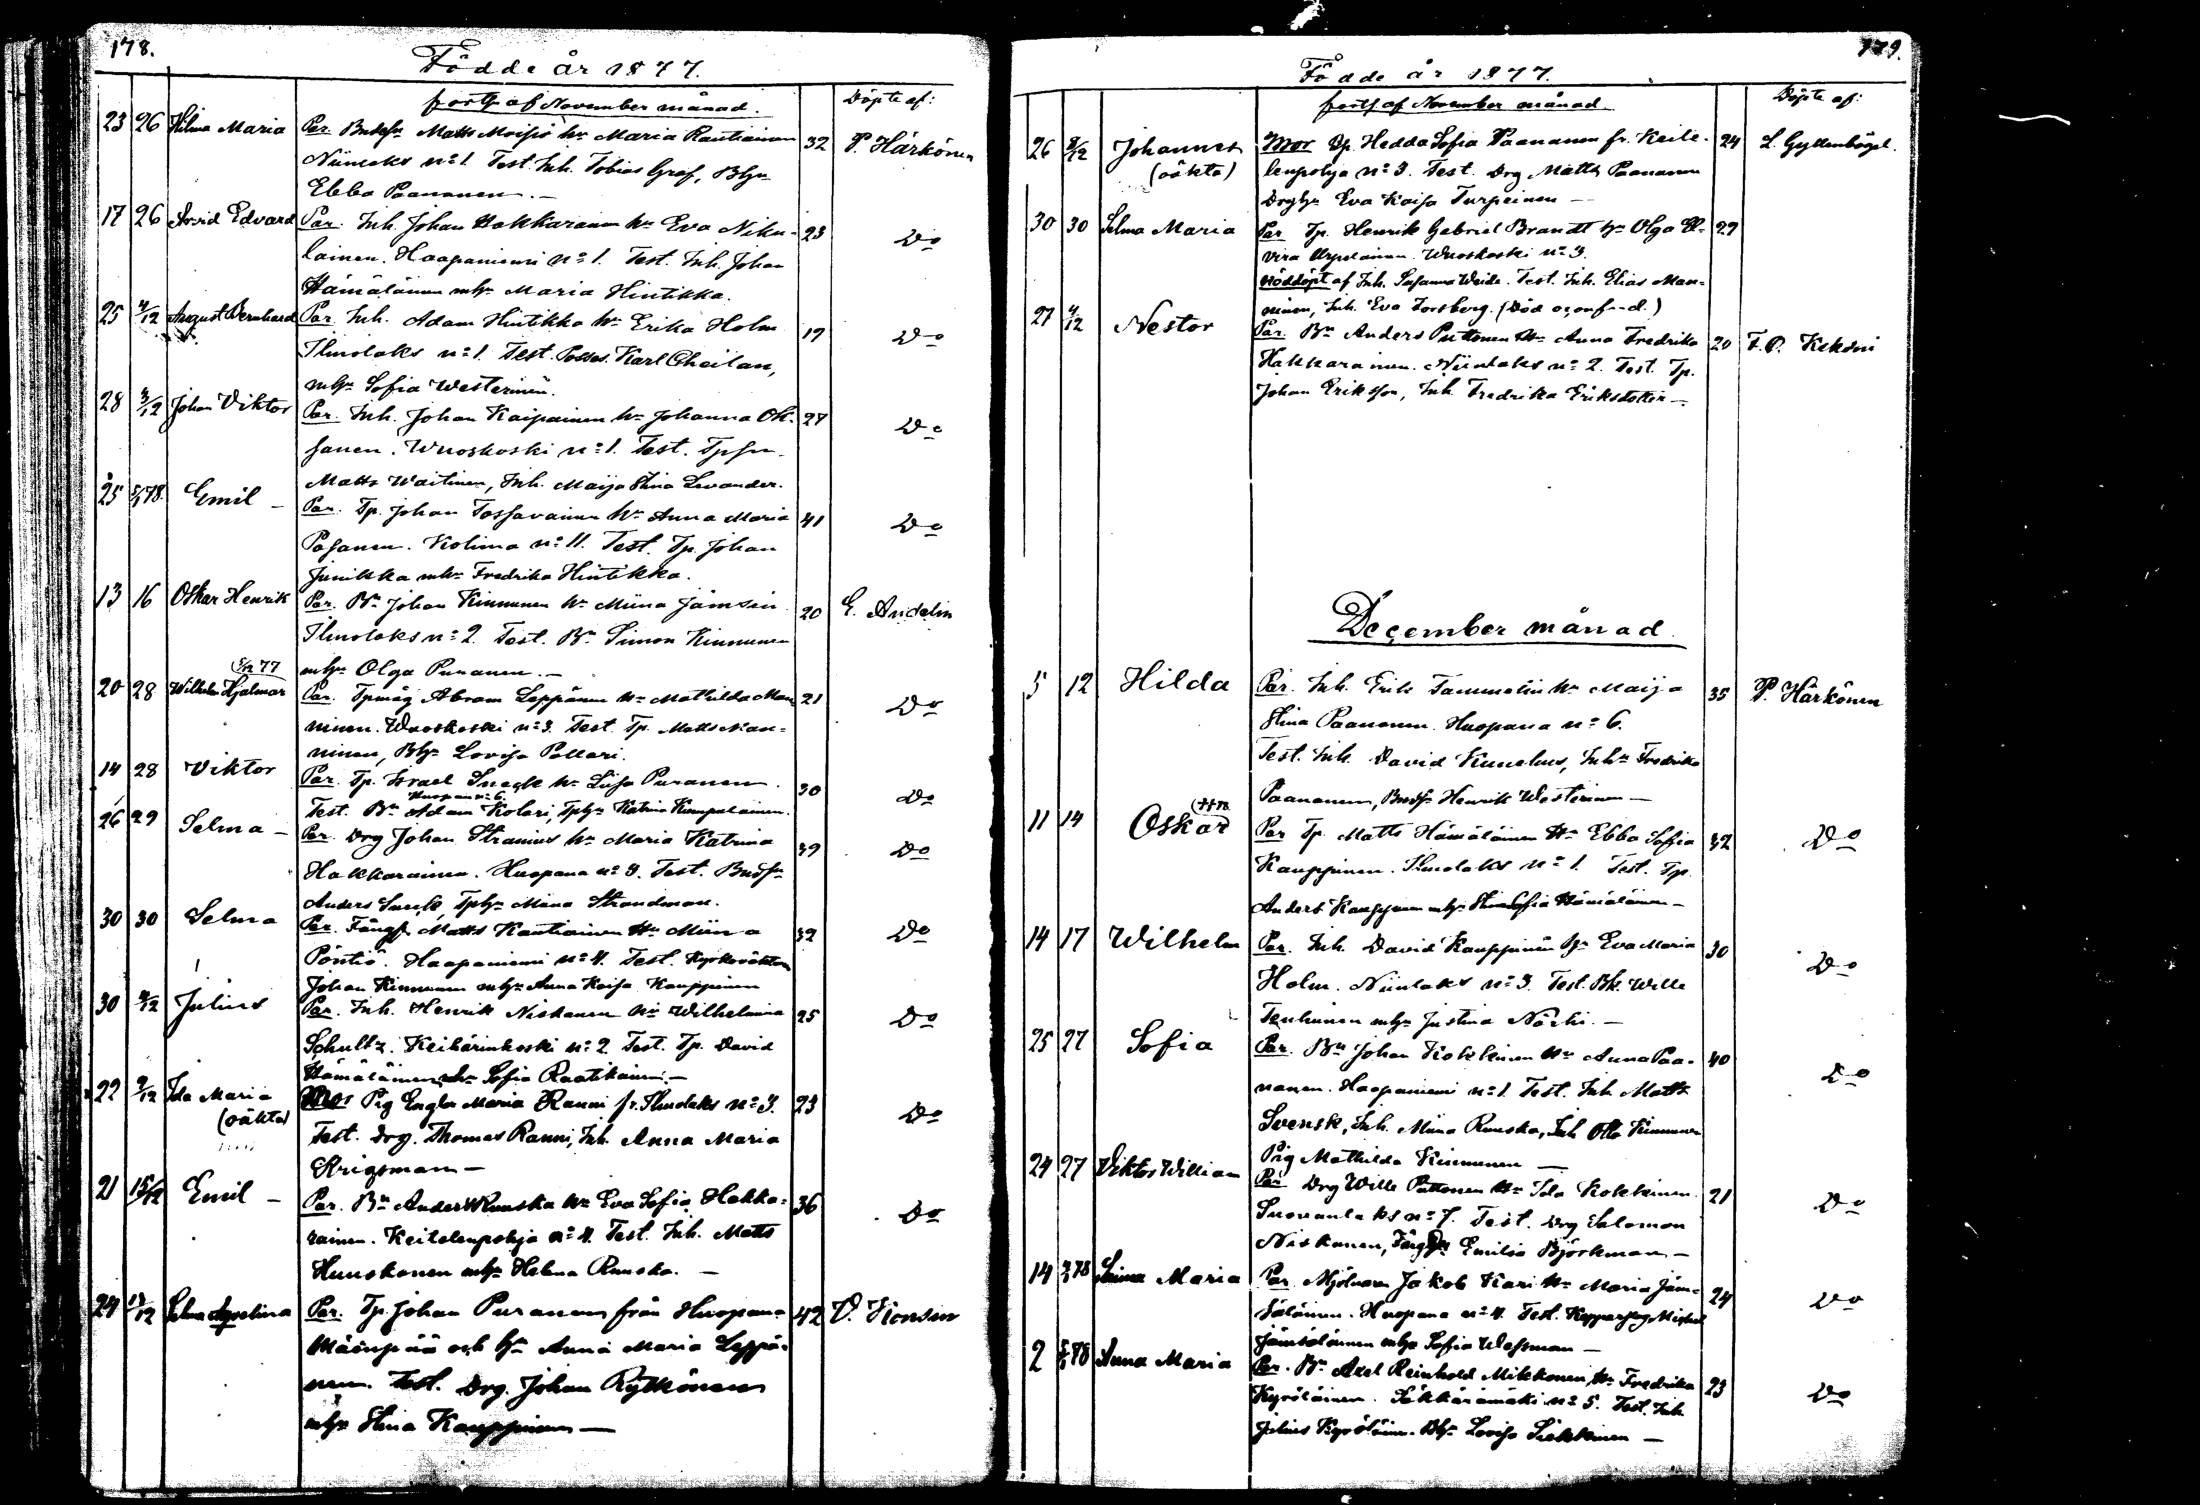 178.
Födde år 1877.
forts. af November månad.
Döpte af:
23 26 Hilma Maria Par. Matts Moisio hu Maria Rautiainen 32 P. Härkönen
Niinilaks no 1. Test. Inh. Tobias Graf,
Ebba Paananen. —
17 26 Arvid Edvard Par. Inh. Johan Hakkarainen hu Eva Niku- 23 Do
lainen. Haapaniemi no 1. Test. Inh. Johan
Hämäläinen mhu Maria Hintikka.
25 4/12 August Bernhard Par. Inh. Adam Hintikka hu Erika Holm 19 Do
Ilmolaks no 1. Test. Posses. Karl
mhu Sofia Westerinen.
28 3/12 Johan Viktor Par. Inh. Johan Kaipainen hu Johanna Ok- 27 Do
sanen. Wuoskoski no 1. Test.
Matts Waitinen, Inh. Maija Stina Levander.
25 5/1 78. Emil — Par. Tp. Johan Tossavainen hu Anna Maria 41 Do
Pasanen. Kolima no 11. Test. Tp. Johan
Jänikka mhu Fredrika Hintikka.
13 16 Oskar Henrik Par. Bn Johan Kinnunen hu Miina Jämsén 20 E. Andelin
Ilmolaks no 2. Test. Bn Simon Kinnunen
mhu Olga Puranen. —
20 28 Wilhelm Hjalmar Par. Tpmåg Abram Leppänen hu Mathilda Man- 21 Do
ninen. Wuoskoski no 3. Test. Tp. Matts Man-
ninen, Bhu Lovisa Pollari.
14 28 Viktor Par. Tp. Israel Sneck hu Liisa Puranen 30 Do
Huopana no 6.
Test. Bn Adam Kolari, Tphu Katrina Kumpulainen.
26 29 Selma — Par. Drg Johan Stranius hu Maria Katrina 39 Do
Hakkarainen. Huopana no 3. Test.
Anders Sneck Tphu Miina Strandman.
30 30 Selma Par. Matts Rautiainen hu Miina 32 Do
Pöntiö. Haapaniemi no 4. Test. Kyrkoväktaren
Johan Kinnunen mhu Anna Kaisa Kauppinen
30 4/12 Julius Par. Inh. Henrik Niskanen hu Wilhelmina 25 Do
Schultz. Keihärinkoski no 2. Test. Tp. David
Hämäläinen mhu Sofia Raatikainen. —
22 9/12 Ida Maria (oäkta) Mor Pig Engla Maria Ranni fr. Ilmolaks no 3. 23 Do
Test. Drg. Thomas Ranni, Inh. Anna Maria
Krigsman —
21 15/12 Emil — Par. Bn Anders Ruuska hu Eva Sofia Hakka- 36 Do
rainen. Keitelenpohja no 4. Test. Inh. Matts
Huuskonen mhu Helena Ruuska. —
24 Selma Par. Tp. Johan Puranen från Huopana 42
Mäenpää och hu Anna Maria Leppä-
nen. Test. Drg. Johan Rytkönen
mhu Stina Kauppinen —
179.
Födde år 1877.
forts. af November månad
Döpte af:
26 8/12 Johannes (oäkta) Mor Hedda Sofia Paananen fr. Keite- 24 L. Gyllenbögel.
lenpohja no 3. Test. Drg Matts Paananen
Drghu Eva Kaisa Turpeinen —
30 30 Selma Maria Par Tp. Henrik Gabriel Brandt hu Olga El- 29
vira Wuoskoski no 3.
Nöddöpt af Inh. Susanna Weide. Test. Inh. Elias Man-
ninen, Inh. Eva Forsberg.
27 4/12 Nestor Par. Bn Anders Puttonen hu Anna Fredrika 20 F. O. Kekoni
Hakkarainen. Niinilaks no 2. Test. Tp.
Johan Eriksson, Inh. Fredrika Eriksdotter —
December månad.
5 12 Hilda Par. Inh. Erik Tammelin hu Maija 35 P. Härkönen
Stina Paananen. Huopana no 6.
Test. Inh. David Kunelius, Inhu Fredrika
Paananen, Henrik Westerinen —
11 14 Oskar Par Tp. Matts Hämäläinen hu Ebba Sofia 32 Do
Kauppinen. Ilmolaks no 1. Test. Tp.
Anders Kauppinen mhu Sofia Hämäläinen —
14 17 Wilhelm Par. Inh. David Kauppinen hu Eva Maria 30 Do
Holm. Niinilaks no 3. Test. Bk. Wille
Tenhunen mhu Justina Närhi. —
25 27 Sofia Par. Bn Johan Kokkinen hu Anna Paa- 40 Do
nanen. Haapaniemi no 1. Test. Inh. Matts
Svensk, Inh. Miina Ruuska, Inh. Otto Kinnunen
Pig Mathilda Kinnunen —
24 27 Viktor William Par Drg Wille Puttonen hu Ida Kokkinen. 21 Do
Suovanlaks no 7. Test. Drg Salomon
Niskanen, Emilia Björkman —
14 78 Maria Par. Mjölnaren Jakob Kari hu Maria Jäm- 24 Do
säläinen. Huopana no 4. Test. Michel
Jämsäläinen mhu Sofia Wessman —
2 78 Anna Maria Par. Bn Axel Reinhold Mikkonen, hu Fredrika 23 Do
Kyröläinen. Säkkärämäki no 5. Test. Inh.
Julius Kyröläinen. Bhu Lovisa Siekkinen —